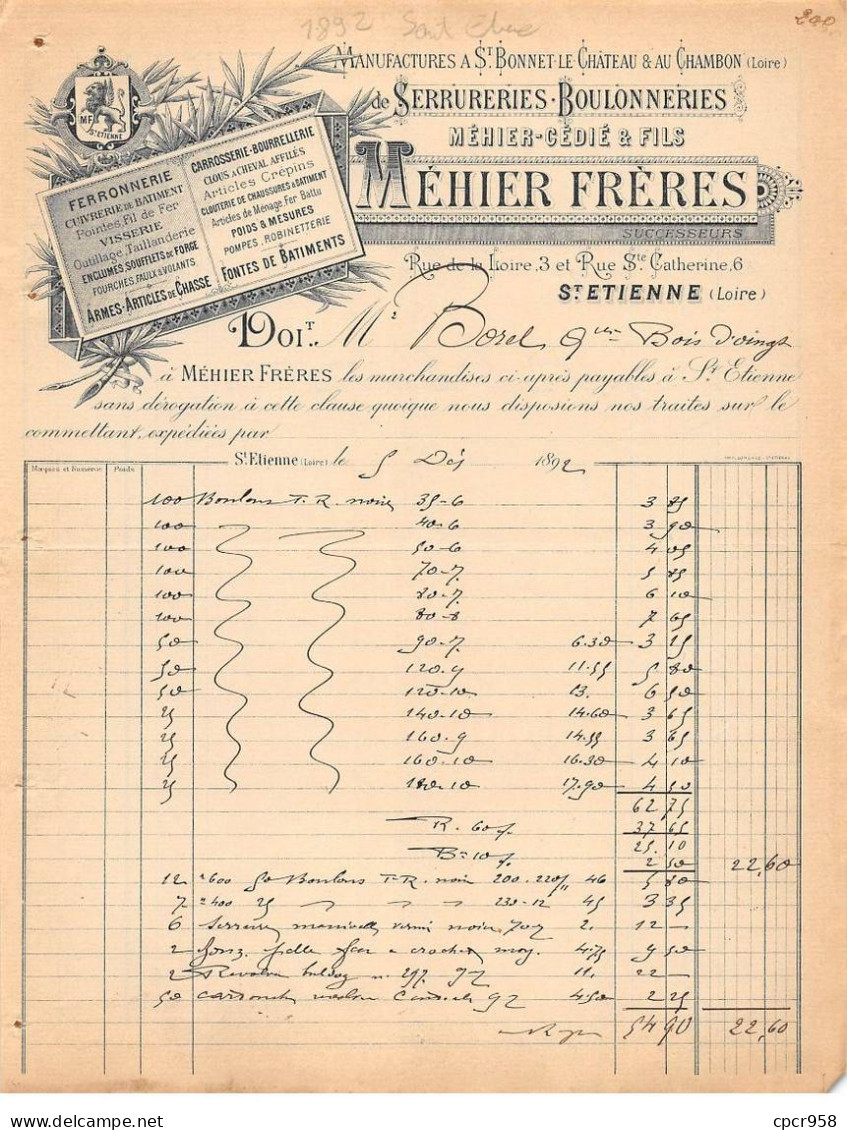 1892 Saint Etienne
200.
MANUFACTURES A ST BONNET-LE-CHÂTEAU & AU CHAMBON (Loire)
de SERRURERIES-BOULONNERIES
MÉHIER-CÉDIÉ & FILS
MÉHIER FRÈRES
SUCCESSEURS
Rue de la Loire, 3 et Rue Ste Catherine, 6
ST ETIENNE (Loire)
MF
ST ETIENNE
FERRONNERIE
CUIVRERIE DE BATIMENT
Pointes, Fil de Fer
VISSERIE
Outillage Taillanderie
ENCLUMES, SOUFFLETS DE FORGE
FOURCHES, FAULX & VOLANTS
ARMES-ARTICLES DE CHASSE
CARROSSERIE-BOURRELLERIE
CLOUS A CHEVAL AFFILÉS
Articles Crépins
CLOUTERIE DE CHAUSSURES & BATIMENT
Articles de Ménage, Fer Battu
POIDS & MESURES
POMPES, ROBINETTERIE
FONTES DE BATIMENTS
DOIT. Mr Borel, Bois d'oingt
à MÉHIER FRÈRES les marchandises ci-après payables à St Etienne
sans dérogation à cette clause quoique nous disposions nos traites sur le
commettant, expédiées par
Marques et Numéros Poids St Etienne (Loire) le 5 Déc 1892
100 Boulons T.R. noirs 35-6 3 85
100 40-6 3 90
100 50-6 4 05
100 70-7 5 85
100 80-7 6 10
100 80-8 7 65
50 90-7 6.30 3 15
50 120-9 11.55 5 80
50 120-10 13. 6 50
25 140-10 14.60 3 65
25 160-9 14.55 3 65
25 160-10 16.30 4 10
25 180-10 17.90 4 50
62 75
R. 60% 37 65
25.10
Bon 10% 2 50 22,60
12 k600 50 Boulons T.R. noir 200-220/11 46 5 80
7 k400 25 230-12 45 3 35
6 Serrures verni noir 707 2. 12 —
2 a crochet moy. 4.75 9 50
2 Revolver buldog n. 297 97 11. 22 —
50 92 4.50 2 25
54 90 22,60
cpcr958